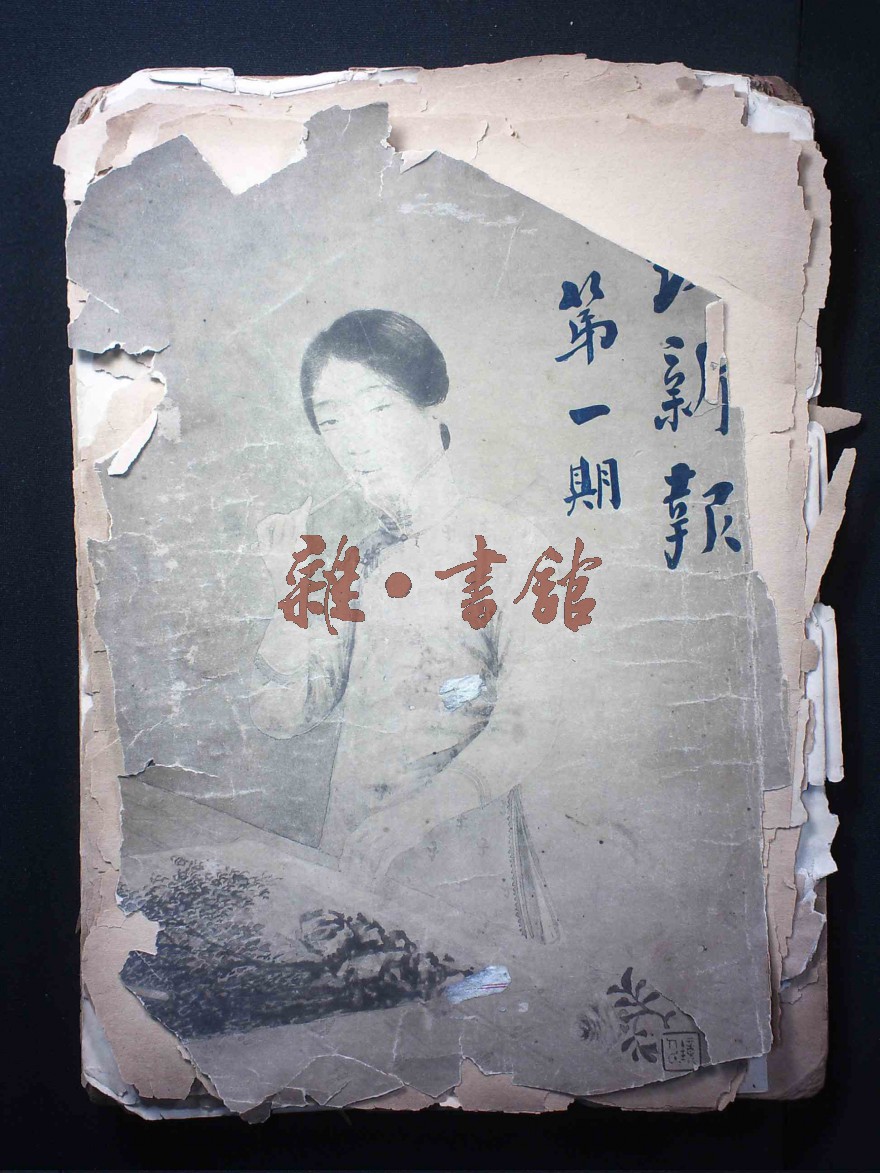 新報
第一期
雜·書館